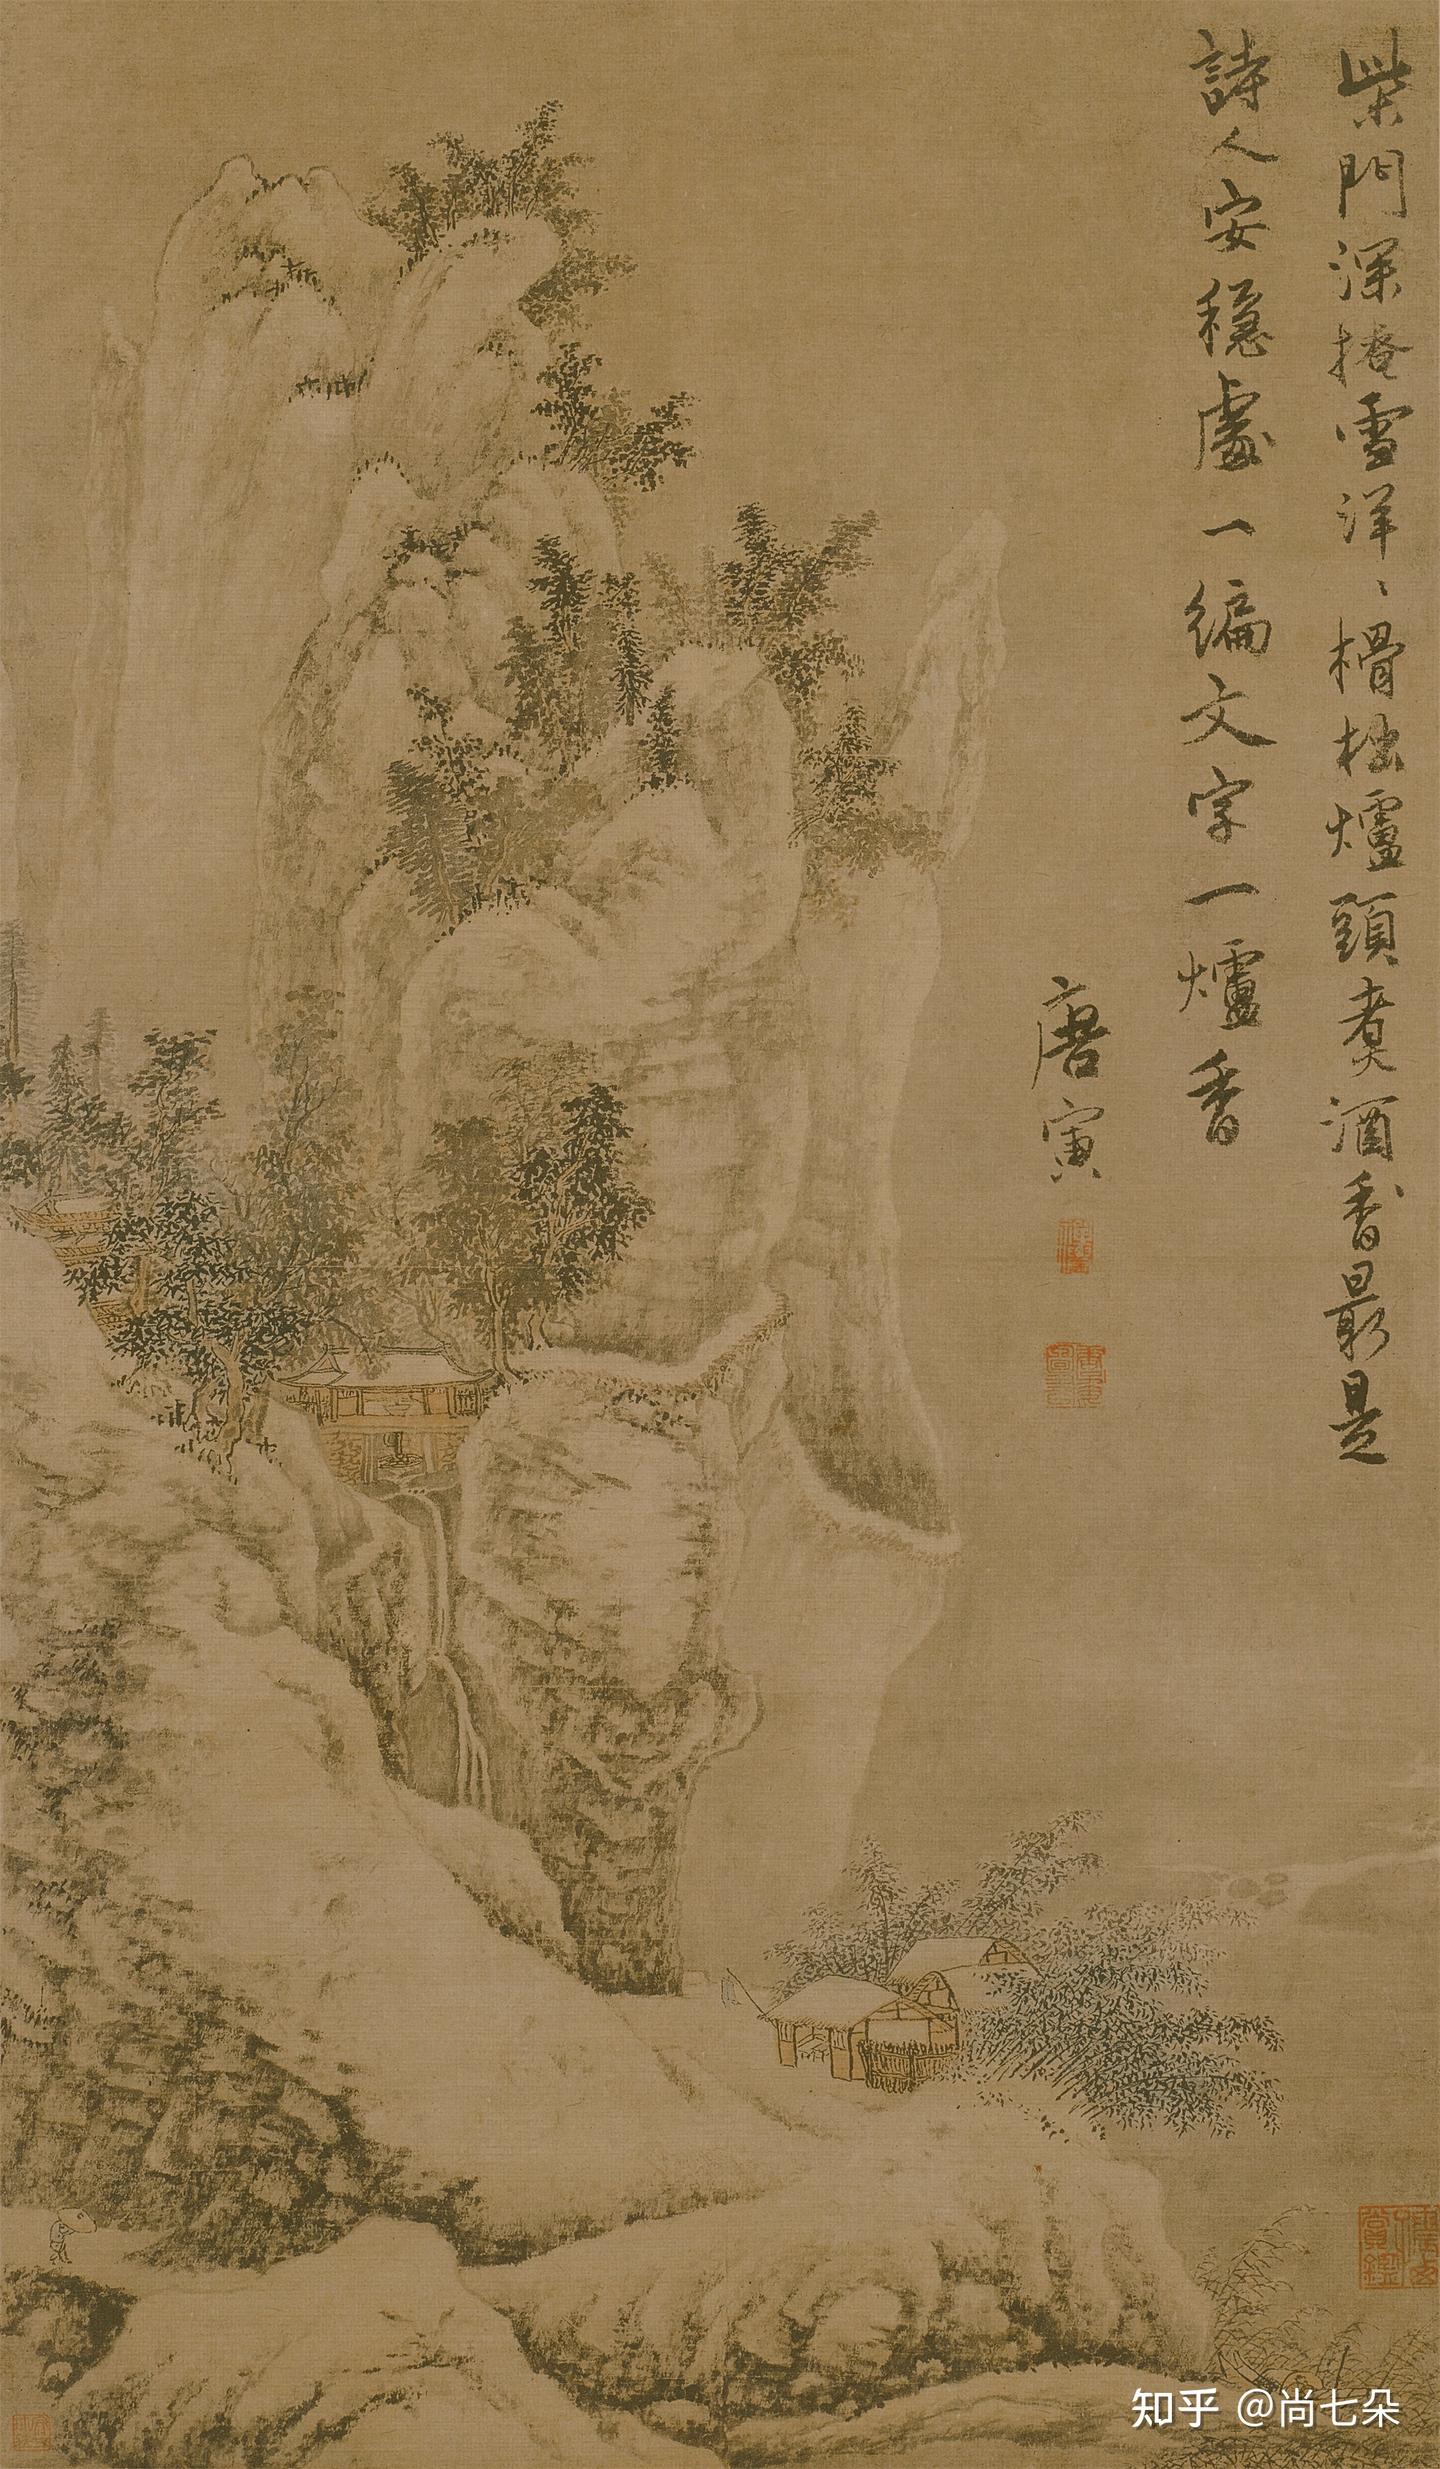 柴門深掩雪洋〻榾柮爐頭煮酒香最是
詩人安穩處一編文字一爐香
唐寅
知乎 @尚七朵